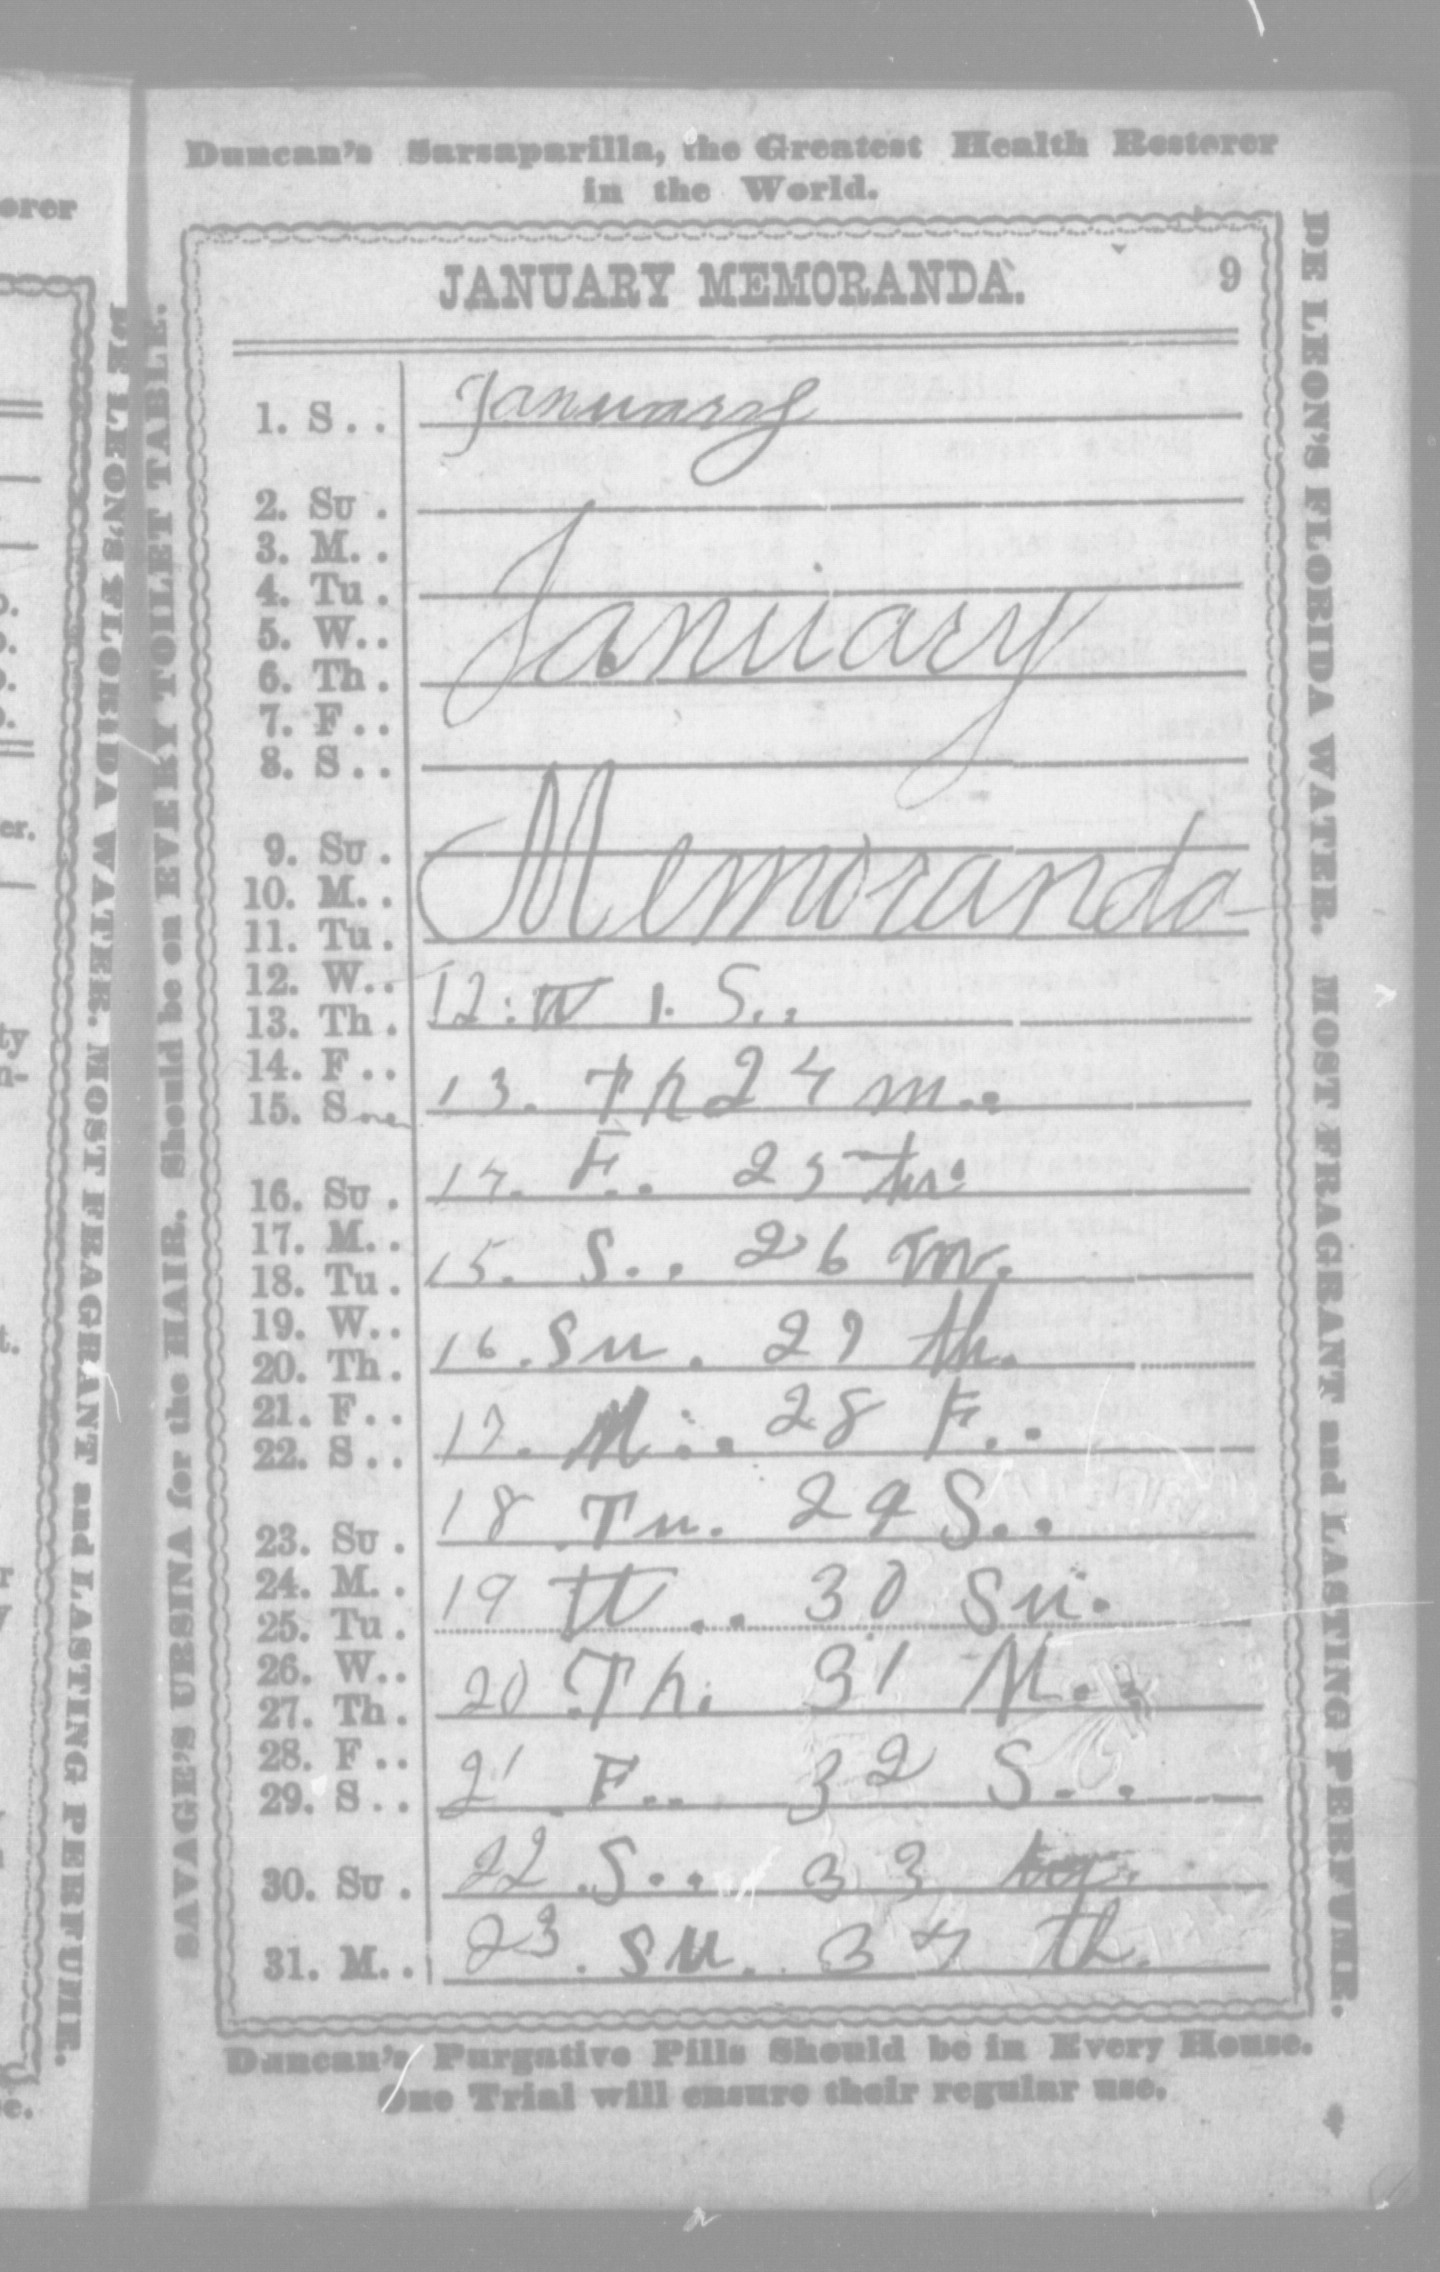 Duncan's Sarsaparilla, the Greatest Health Restorer
in the World.
JANUARY MEMORANDA. 9
1. S . . January
2. Su .
3. M. .
4. Tu .
January
5. W. .
6. Th .
7. F . .
8. S . .
9. Su .
Memoranda
10. M. .
11. Tu .
12. W. .
12: W 1. S..
13. Th .
14. F . .
13. Th 24 m..
15. S
16. Su .
14. F.. 25
17. M. .
15. S.. 26
18. Tu .
19. W. .
16. Su . 27 th.
20. Th .
21. F . .
17. M . . 28 F. .
22. S . .
18 Tu. 29 S. .
23. Su .
24. M. .
19 W . . 30 Su.
25. Tu .
26. W. .
20 Th. 31 M. .
27. Th .
28. F . .
21 F. . 32 S. .
29. S . .
22 S. . . 33
30. Su .
23. Su. 34 th.
31. M. .
Duncan's Purgative Pills Should be in Every House.
One Trial will ensure their regular use.
SAVAGE'S URSINA for the HAIR. Should be on EVERY TOILET TABLE.
DE LEON'S FLORIDA WATER. MOST FRAGRANT and LASTING PERFUME.
DE LEON'S FLORIDA WATER. MOST FRAGRANT and LASTING PERFUME.